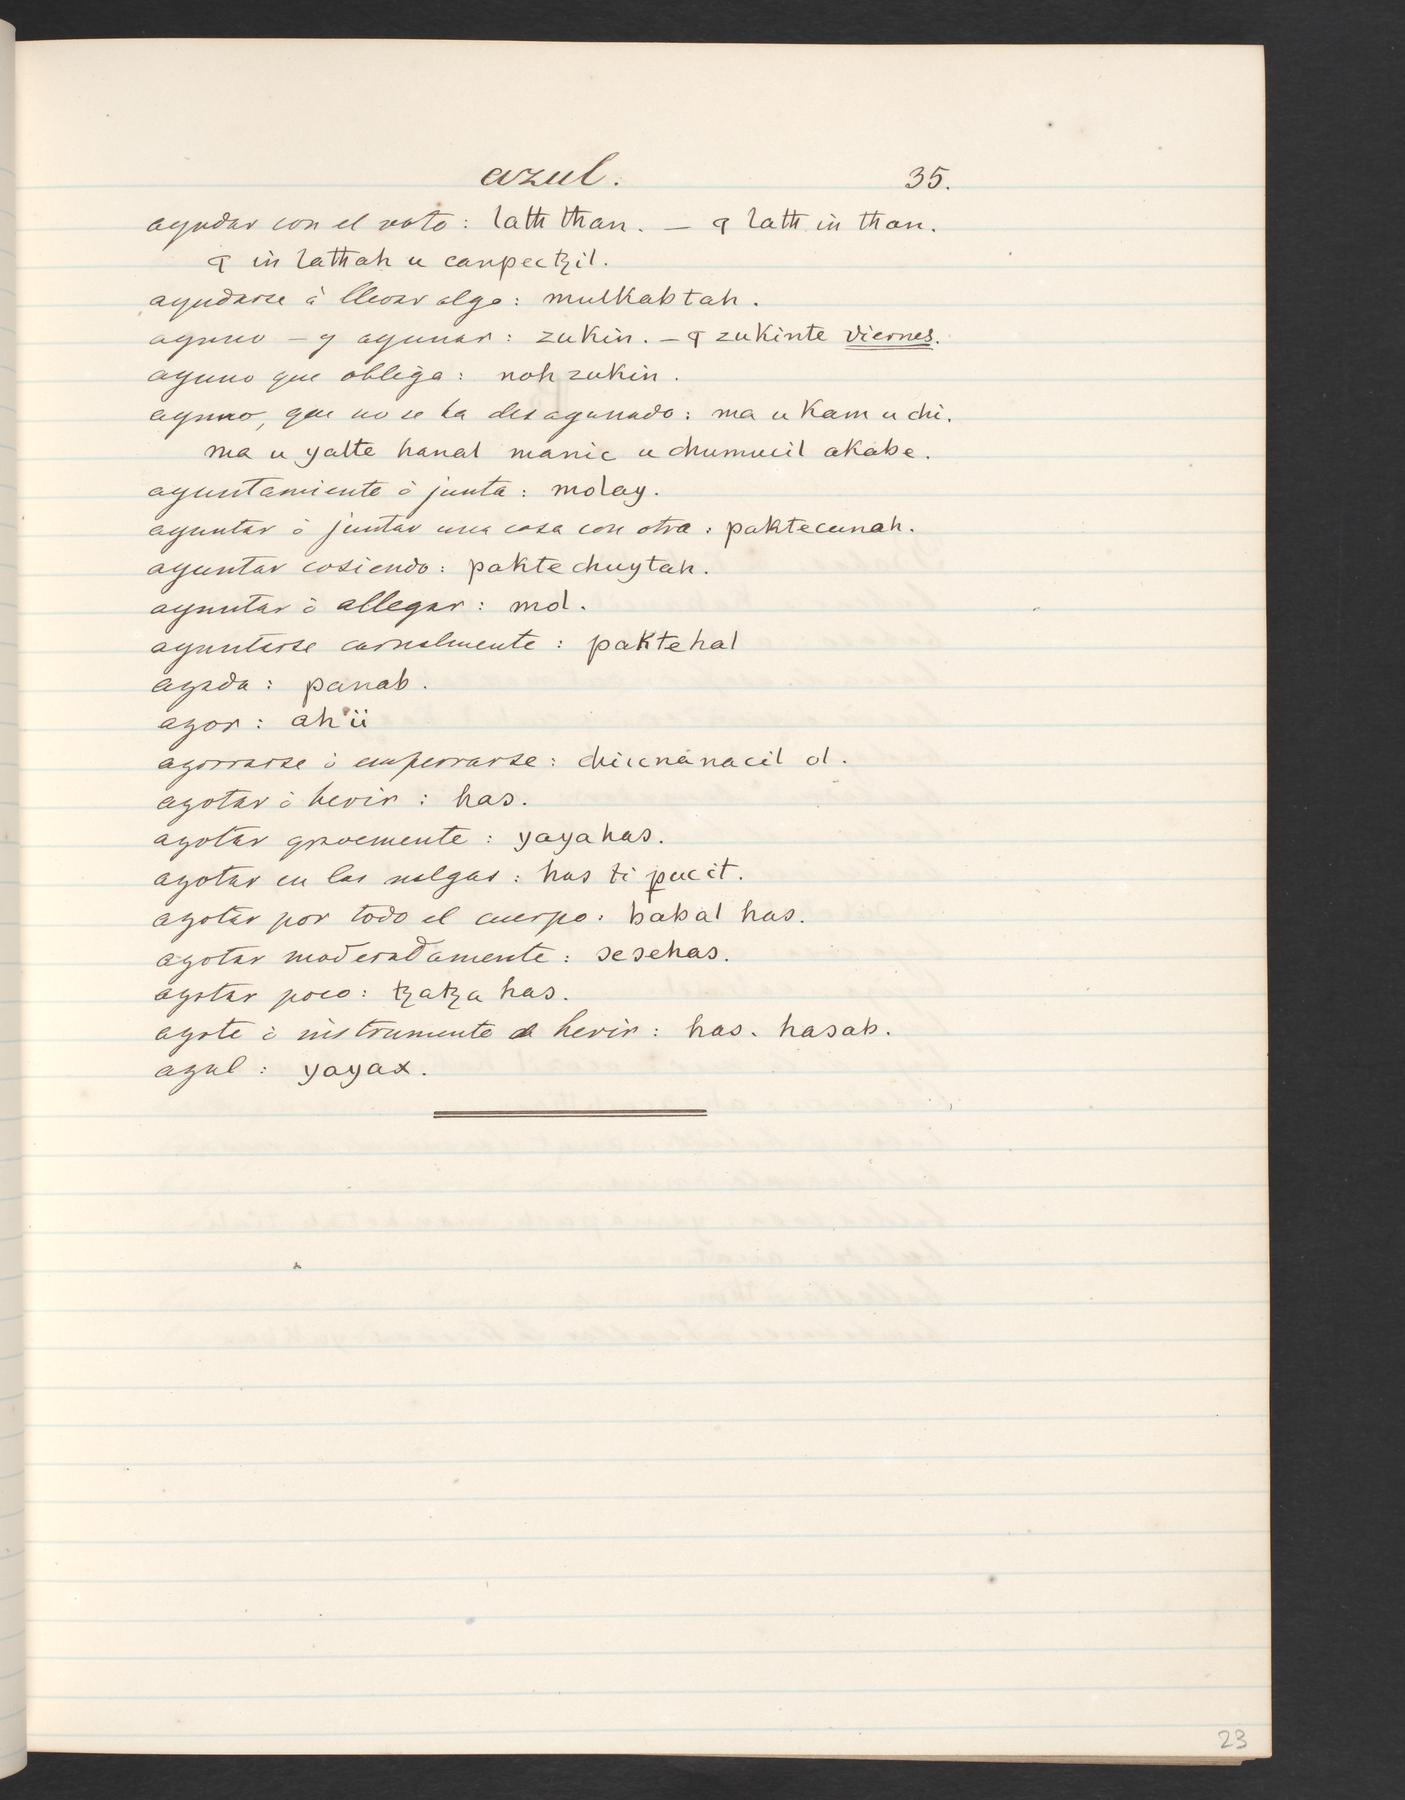 azul. 35.
ayudar con el voto: latħ tħan. — ꟼ latħ in tħan.
ꟼ in latħah u canpectzil.
ayudarse à llevar algo: mulkabtah.
ayuno — y ayunar: zukin. — ꟼ zukinte viernes.
ayuno que obliga: noh zukin.
ayuno, que no se ha desayunado: ma u kam u chi.
ma u yalte hanal manic u chumucil akabe.
ayuntamiento ò junta: molay.
ayuntar ò juntar una cosa con otra: paktecunah.
ayuntar cosiendo: pakte chuytah.
ayuntar ò allegar: mol.
ayuntarse carnalmente: paktehal
azada: panab.
azor: ah'ii
azorrarse ò emperrarse: chicnanacil ol.
azotar ò herir: has.
azotar gravemente: yayahas.
azotar en las nalgas: has ti ꝑucit.
azotar por todo el cuerpo: babal has.
azotar moderadamente: sesehas.
azotar poco: tzatza has.
azote ò instrumento a herir: has. hasab.
azul: yayax.
23